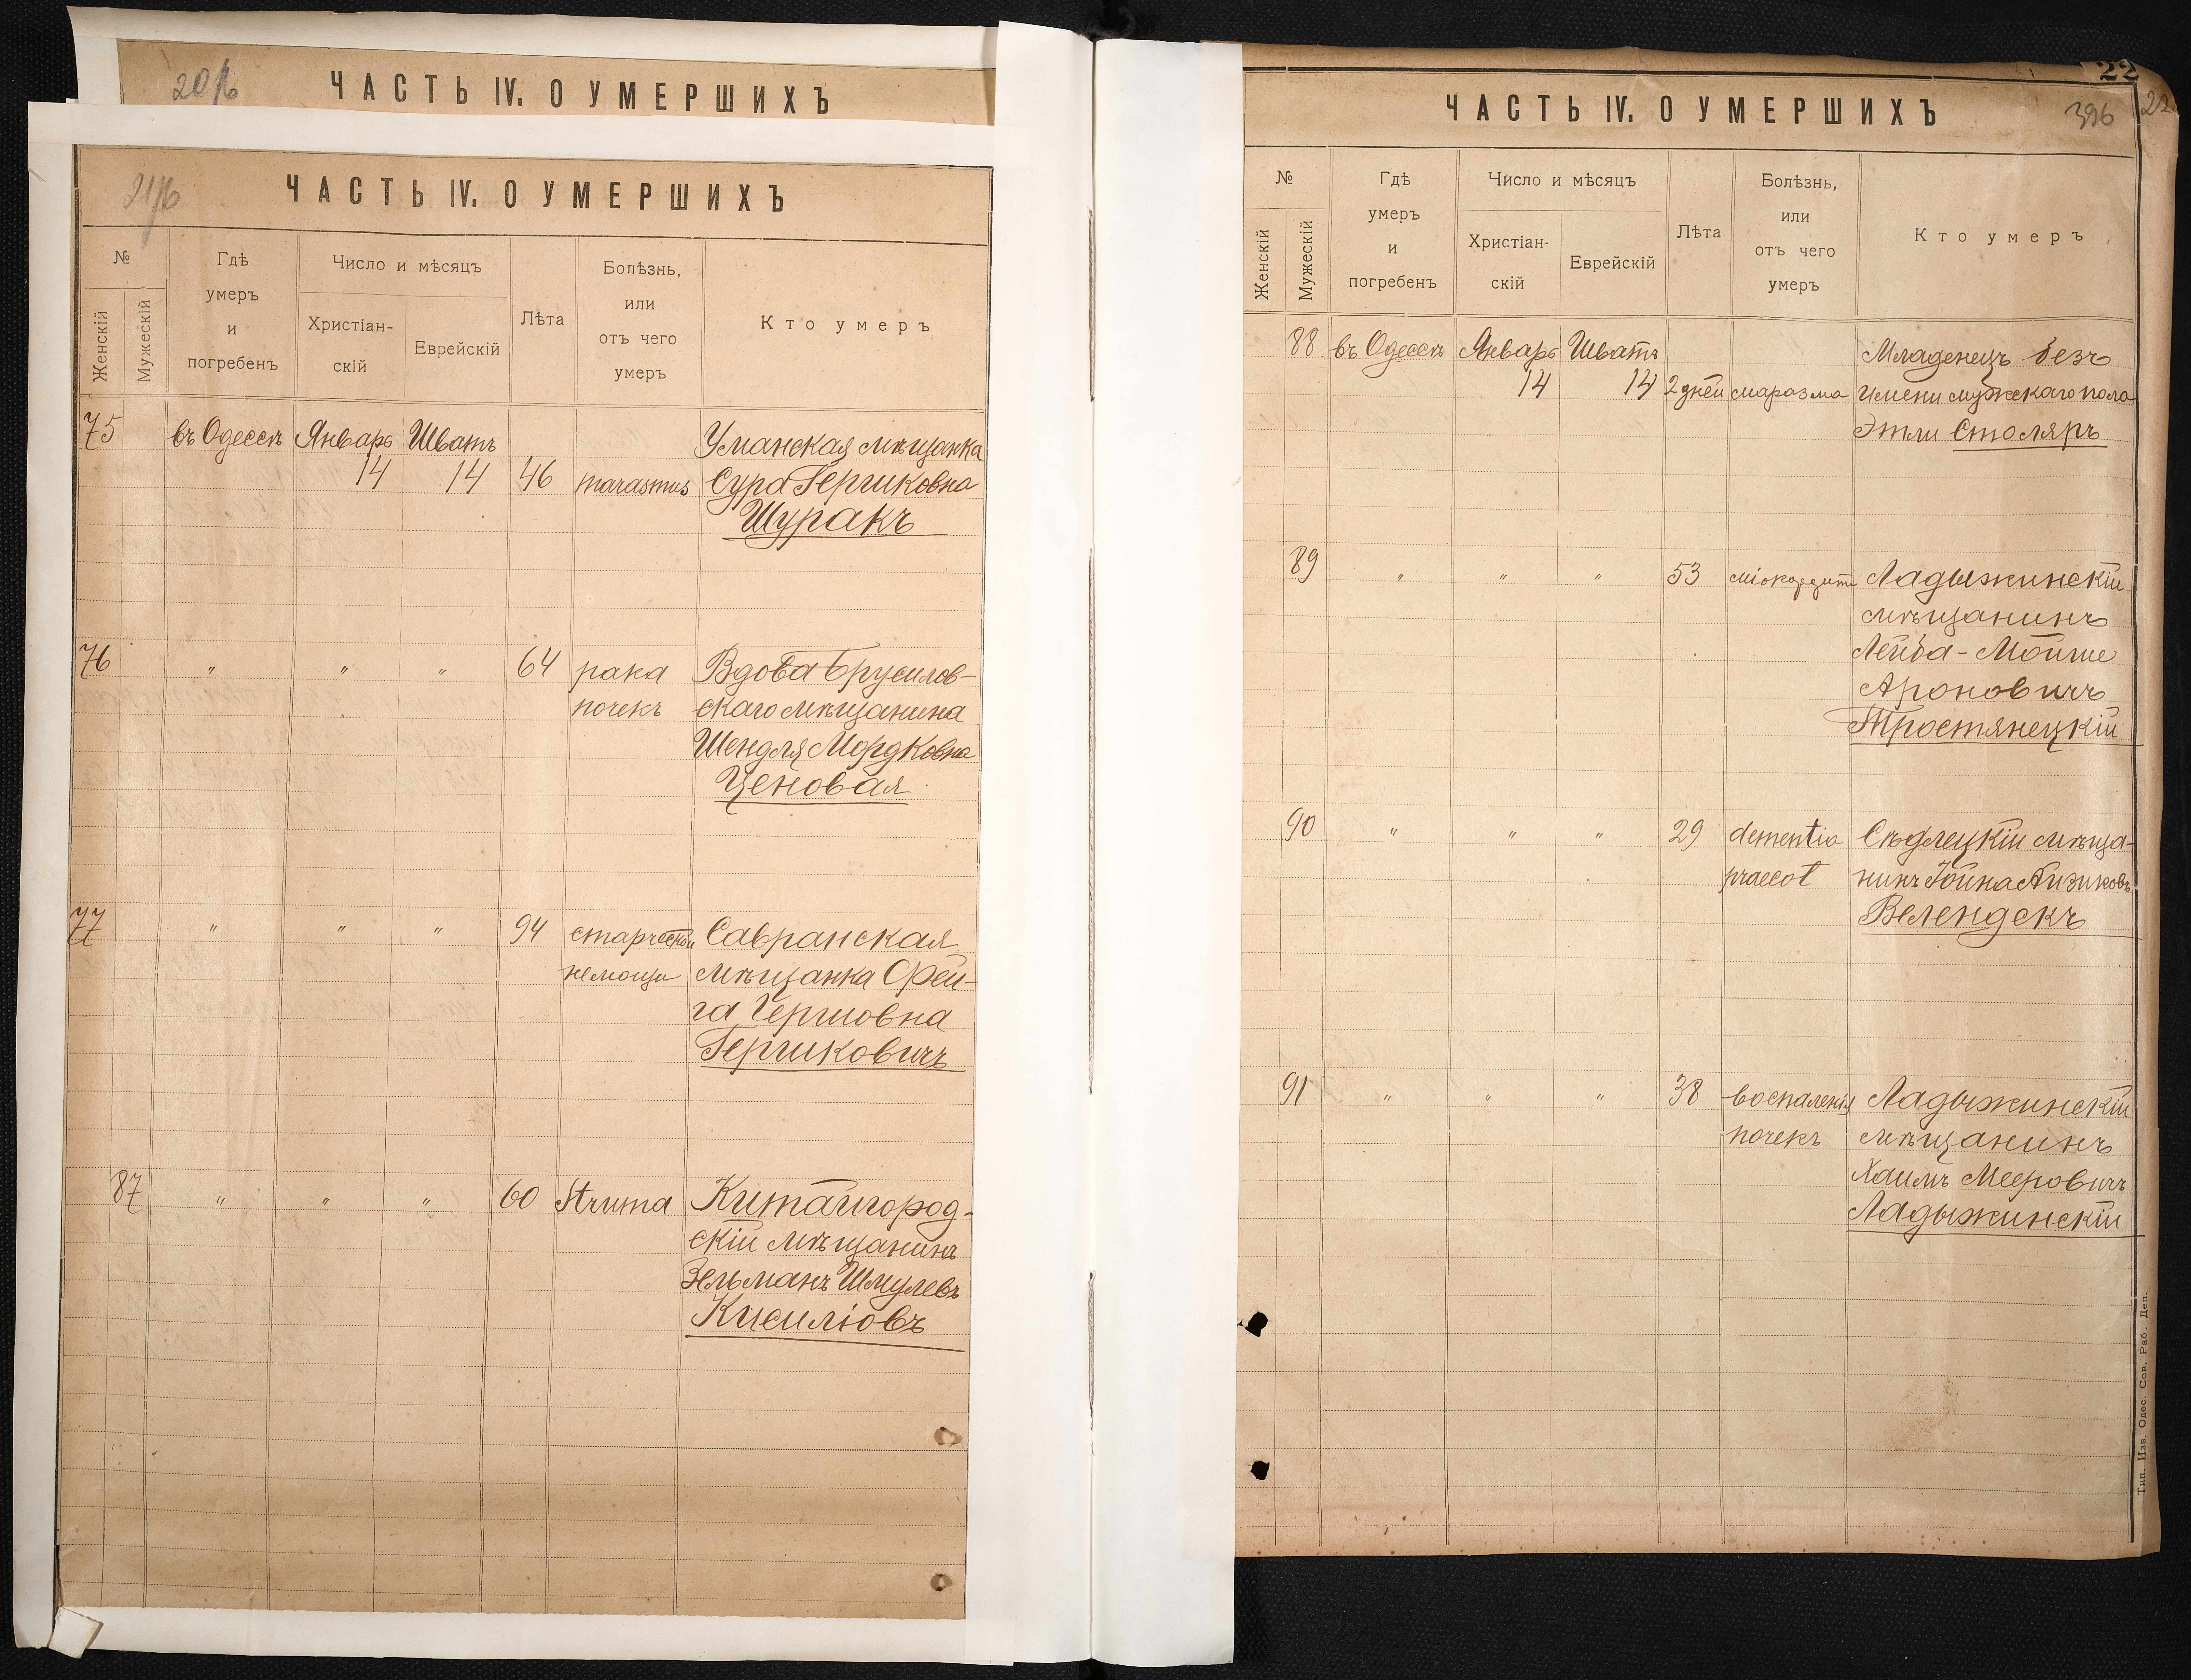 ЧАСТЬ IV. О УМЕРШИХЪ
ЧАСТЬ IV. О УМЕРШИХЪ
№
Женскій
Мужескій
Гдѣ
умеръ
и
погребенъ
Число и мѣсяцъ
Христіан-
скій
Еврейскій
Лѣта
Болѣзнь,
или
отъ чего
умеръ
Кто умеръ
75 въ Одессѣ Январь Шватъ Уманская мѣщанка
14 14 46 marasmus Сура Гершковна
Шуракъ
76 " " " 64 рака Вдова Брусилов-
почекъ скаго мѣщанина
Шендля Мордковна
Ценовая
77 " " " 94 старческой Савранская
немощи мѣщанка Фей-
га Гершовна
Гершковичъ
87 " " " 60 Struma Китайгород-
скій мѣщанинъ
Зельманъ Шмулевъ
Кисиліовъ
22
22
ЧАСТЬ IV. О УМЕРШИХЪ
396
№
Женскій
Мужескій
Гдѣ
умеръ
и
погребенъ
Число и мѣсяцъ
Христіан-
скій
Еврейскій
Лѣта
Болѣзнь,
или
отъ чего
умеръ
Кто умеръ
88 въ Одессѣ Январь Шватъ Младенецъ безъ
14 14 2 дней маразма имени мужскаго пола
Этли Столяръ
89 " " " 53 міокардита Ладыжинскій
мѣщанинъ
Лейба-Мойше
Ароновичъ
Тростянецкій
90 " " " 29 dementia Сѣдлецкій мѣща-
praecot нинъ Іойна Айзиковъ
Велендекъ
91 " " " 38 воспаленія Ладыжинскій
почекъ мѣщанинъ
Хаимъ Мееровичъ
Ладыжинскій
Тип. Изв. Одес. Сов. Раб. Деп.